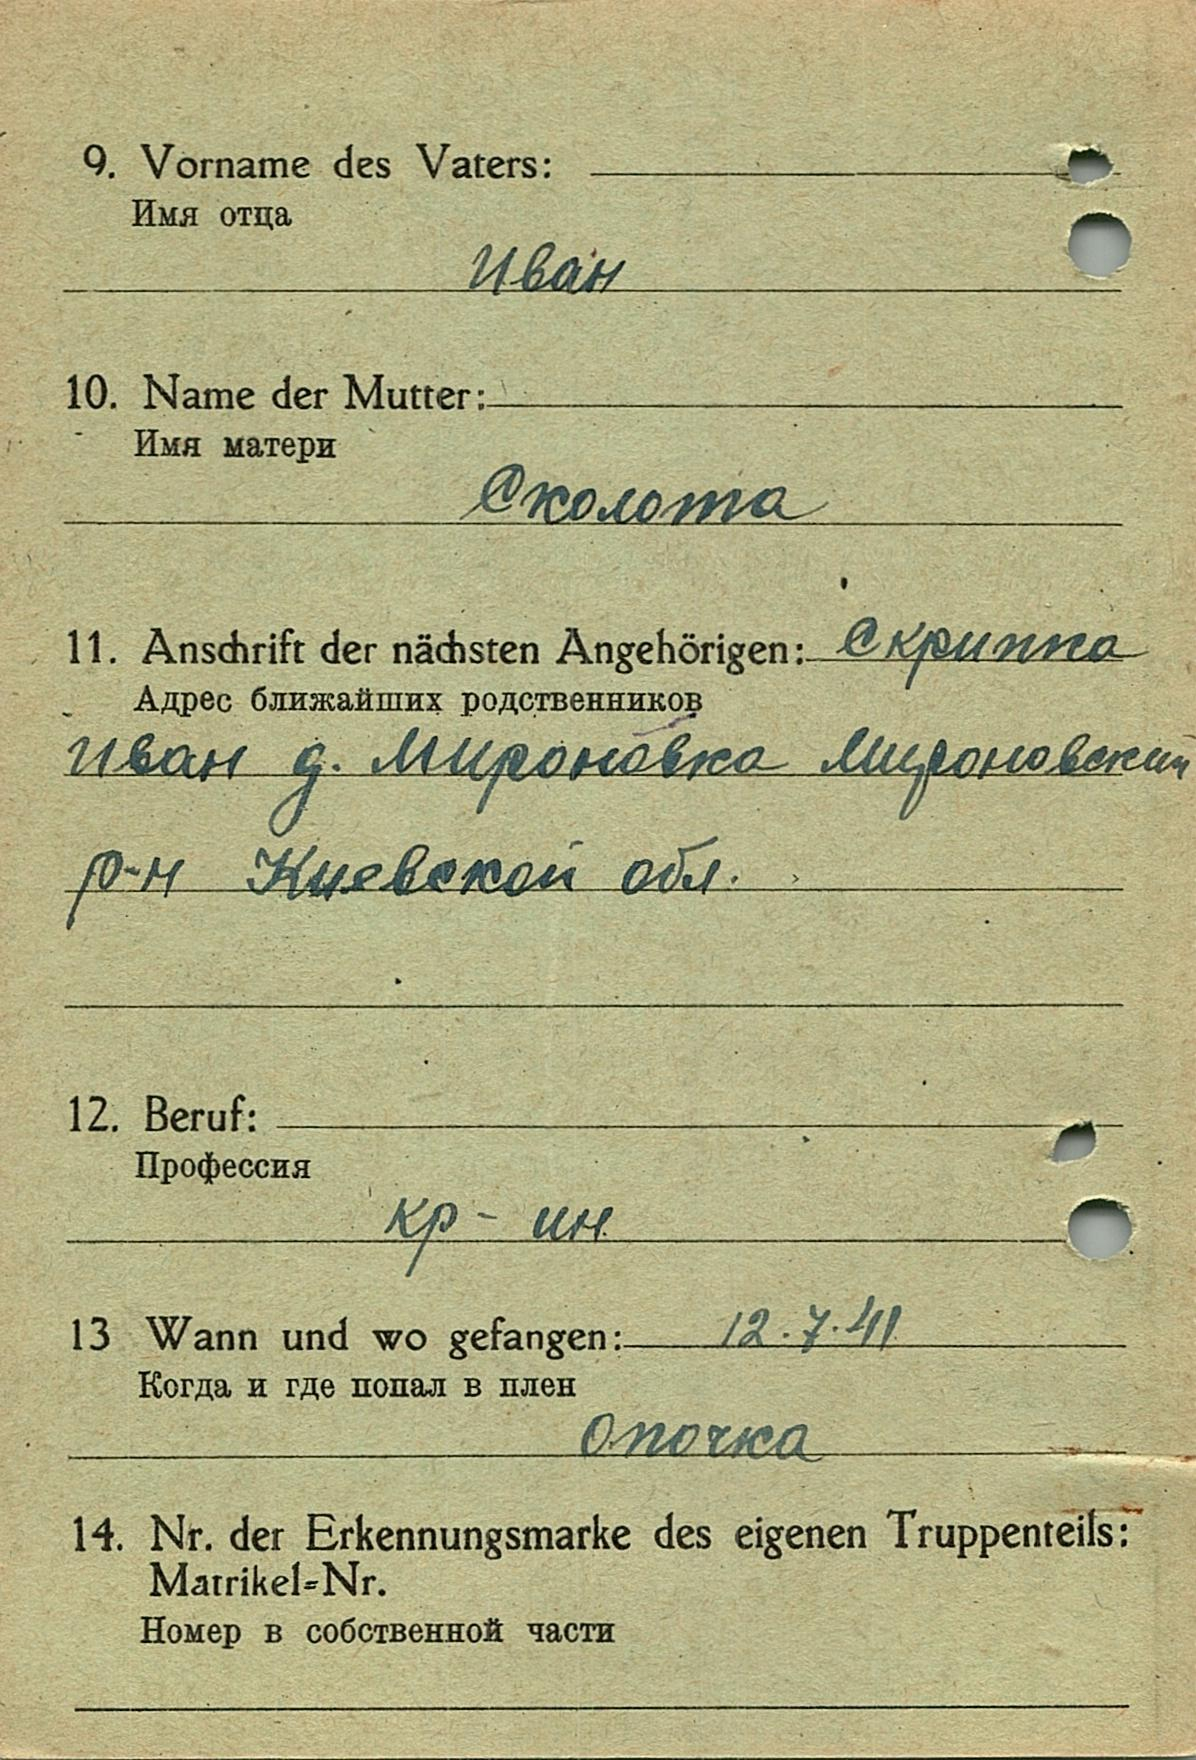 9. Vorname des Vaters:
Имя отца
Иван
10. Name der Mutter:
Имя матери
Сколота
11. Anschrift der nächsten Angehörigen: Скрипка
Адрес ближайших родственников
Иван д. Мироновка Мироновский
р-н Киевской обл.
12. Beruf:
Профессия
кр-ин
13 Wann und wo gefangen: 12.7.41
Когда и где попал в плен
Опочка
14. Nr. der Erkennungsmarke des eigenen Truppenteils:
Matrikel-Nr.
Номер в собственной части